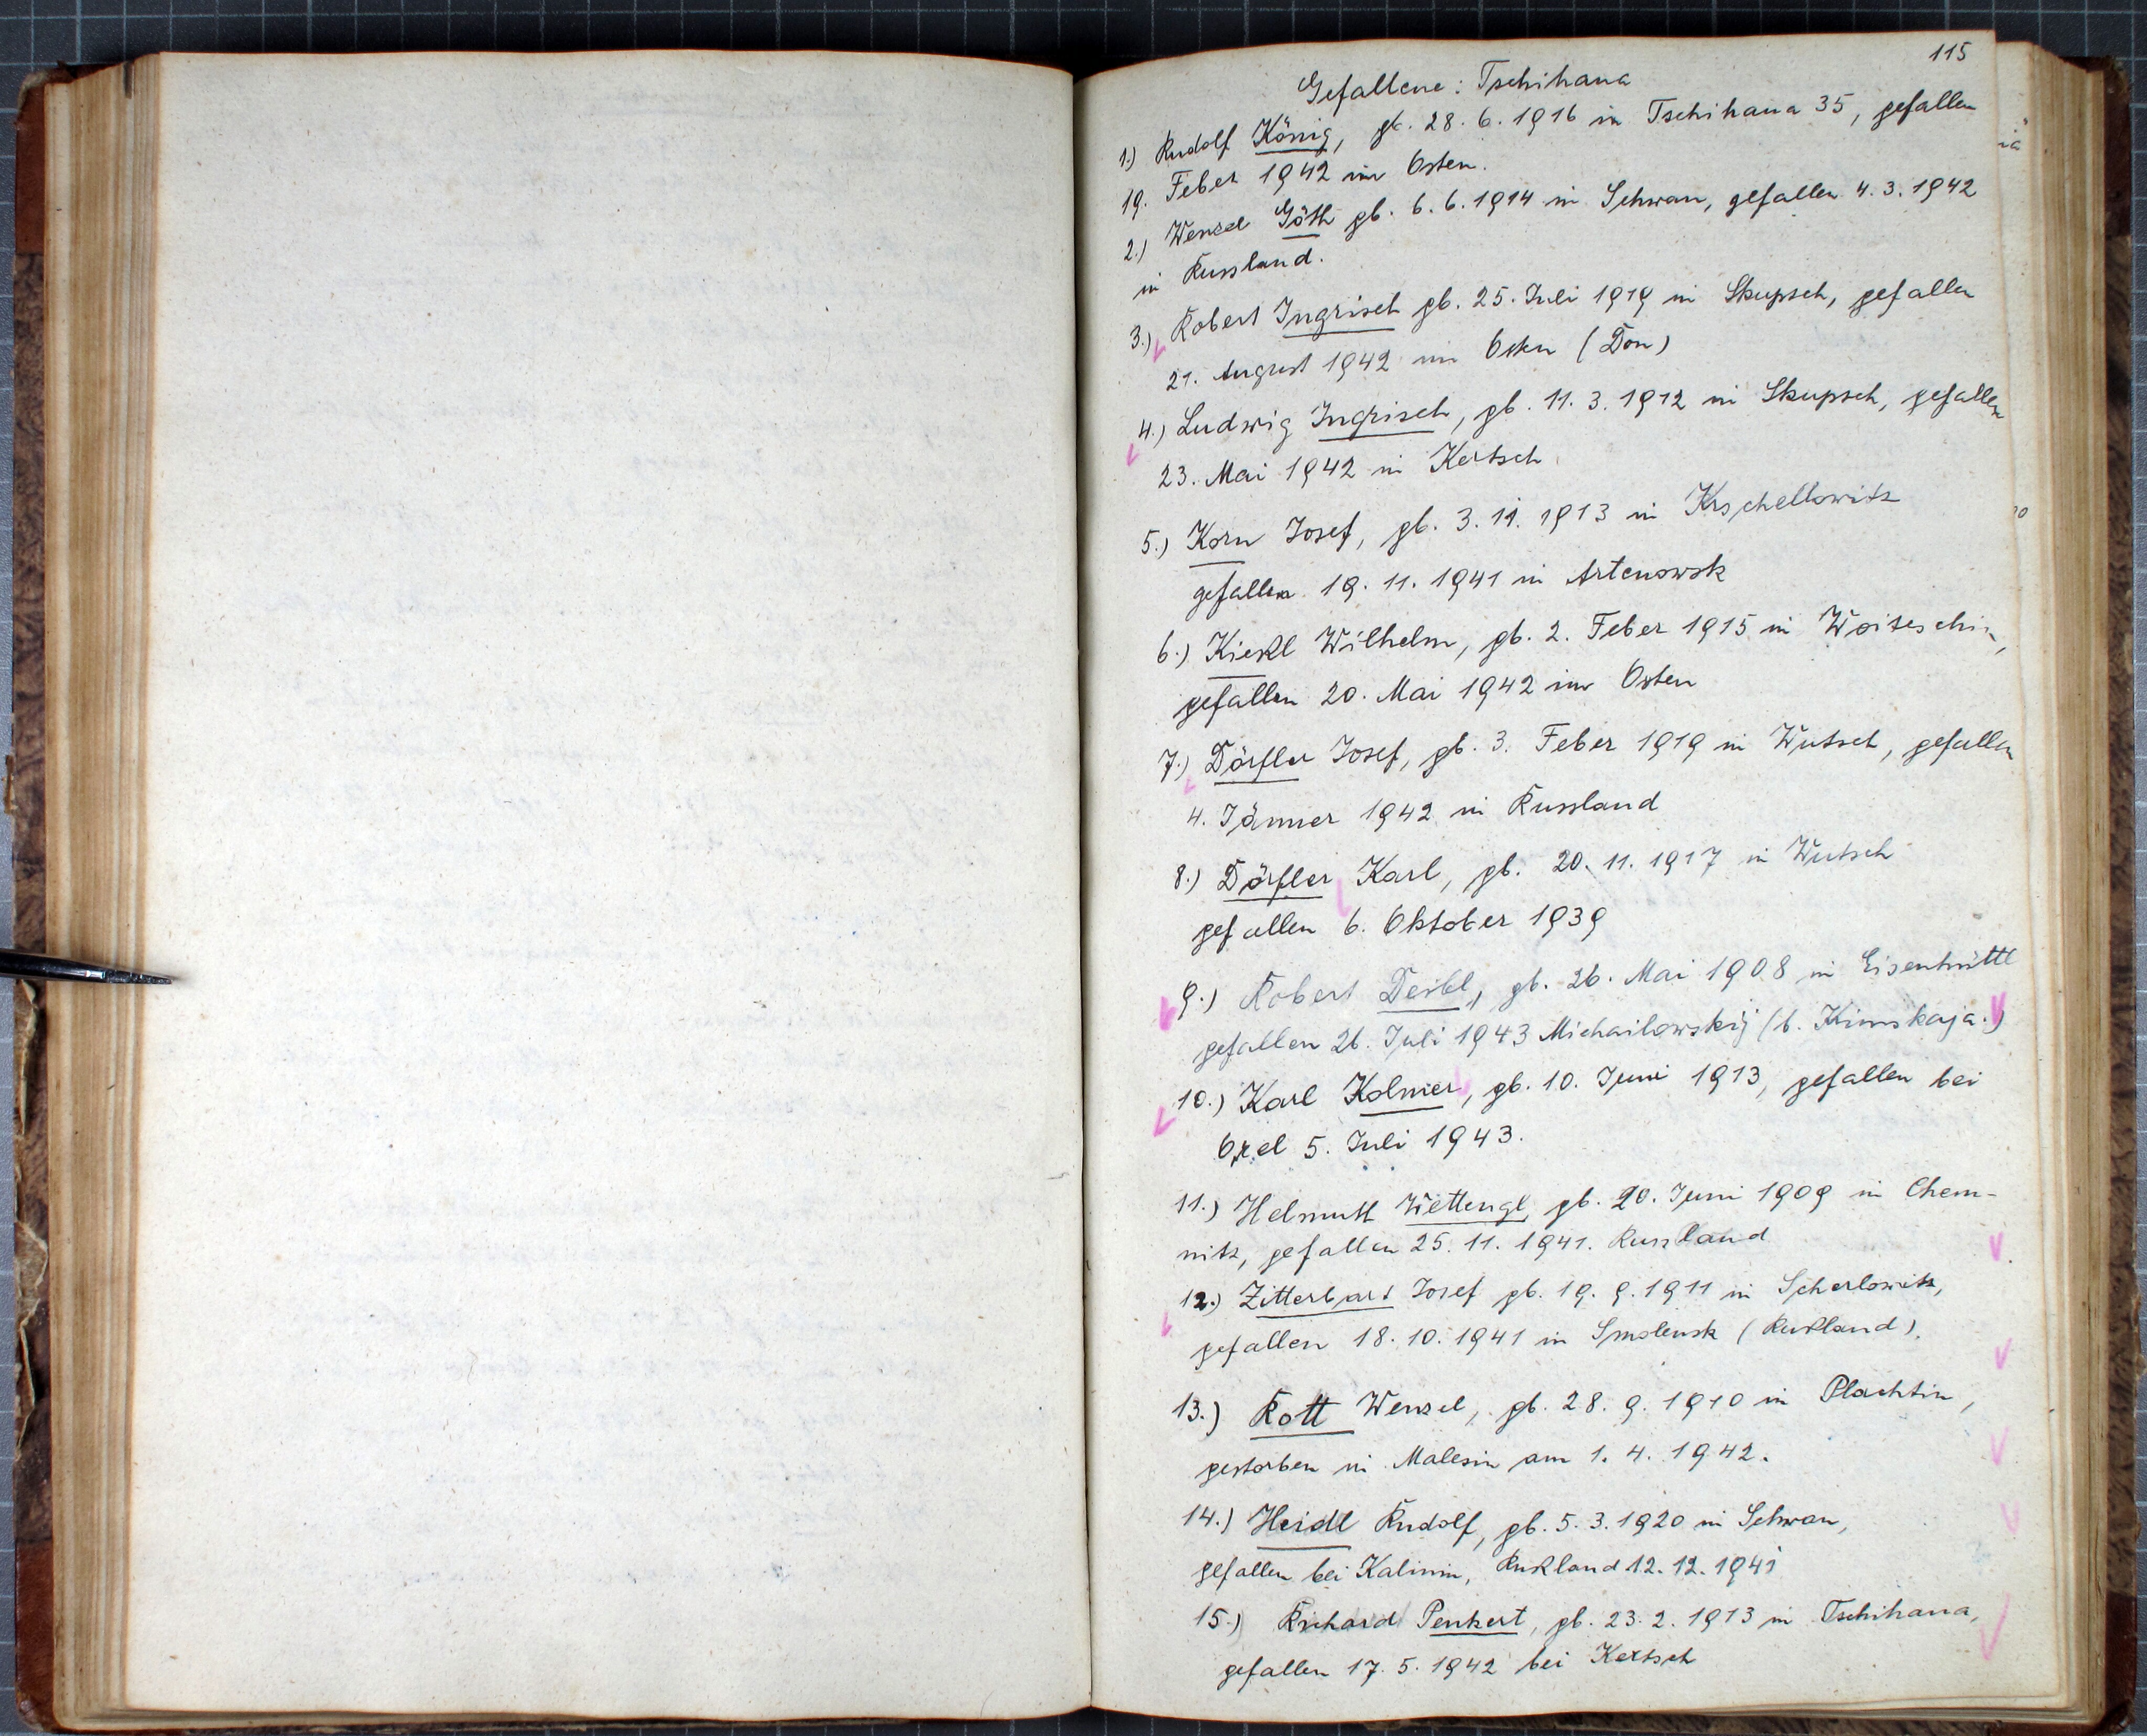 115
Gefallene: Tschihana
1.) Rudolf König, gb. 28. 6. 1916 in Tschihana 35, gefallen
19. Feber 1942 im Osten.
2.) Wenzel Göth gb. 6. 6. 1914 in Schwan, gefallen 4. 3. 1942
in Russland.
3.) Robert Ingrisch gb. 25. Juli 1919 in Skupsch, gefallen
21. August 1942 im Osten (Don)
4.) Ludwig Ingrisch, gb. 11. 3. 1912 in Skupsch, gefallen
23. Mai 1942 in Kertsch
5.) Korn Josef, gb. 3. 11. 1913 in Krschellowitz
gefallen 19. 11. 1941 in Artenowsk
6.) Wilhelm, gb. 2. Feber 1915 in Woiteschin,
gefallen 20. Mai 1942 im Osten
7.) Dörfler Josef, gb. 3. Feber 1919 in Wutsch, gefallen
4. Jänner 1942 in Russland
8.) Dörfler Karl, gb. 20. 11. 1917 in Wutsch
gefallen 6. Oktober 1939
9.) Robert Deibl, gb. 26. Mai 1908 in Eisenhüttl
gefallen 26. Juli 1943 Michailowskij (b. Kimskaja.)
10.) Karl Kolmer, gb. 10. Juni 1913, gefallen bei
Orel 5. Juli 1943.
11.) Helmuth Wettengl, gb. 20. Juni 1909 in Chem-
nitz, gefallen 25. 11. 1941. Russland
12.) Zitterbart Josef gb. 19. 9. 1911 in Scherlowitz,
gefallen 18. 10. 1941 in Smolensk (Rußland).
13.) Rott Wenzel, gb. 28. 9. 1910 in Plachtin,
gestorben in Malesin am 1. 4. 1942.
14.) Heidl Rudolf, gb. 5. 3. 1920 in Schwan,
gefallen bei Kalinin, Rußland 12. 12. 1941
15.) Richard Penkert, gb. 23. 2. 1913 in Tschihana,
gefallen 17. 5. 1942 bei Kertsch